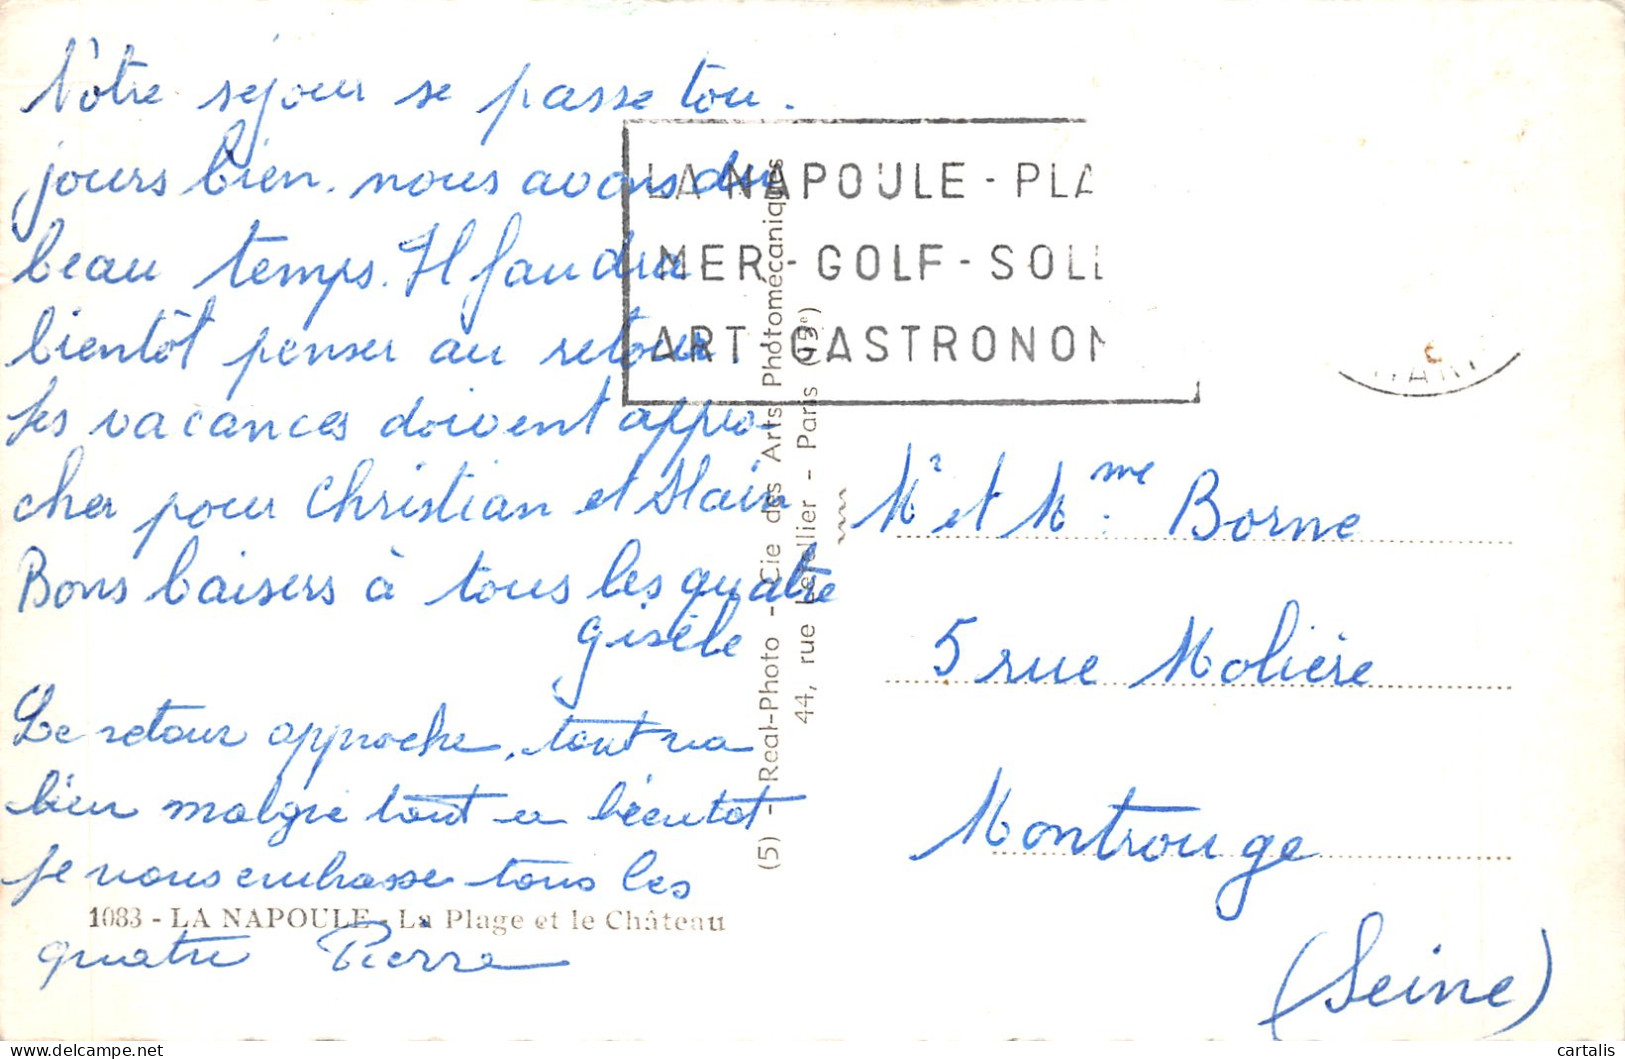 Nôtre séjour se passe tou-
jours bien. nous avons du
beau temps. Il faudra
bientôt penser au retour
les vacances doivent appro-
cher pour Christian et Alain
Bons baisers à tous les quatre
Gisèle
Le retour approche, tout va
bien malgré tout a bientot
je vous embrasse tous les
quatre Pierre
1083 - LA NAPOULE - La Plage et le Château
(5) - Real-Photo - Cie des Arts Photomécaniques
44, rue Letellier - Paris (15e)
LA NAPOULE - PLA
MER - GOLF - SOLE
ART GASTRONOM
Mr et Mme Borne
5 rue Molière
Montrouge
(Seine)
cartalis